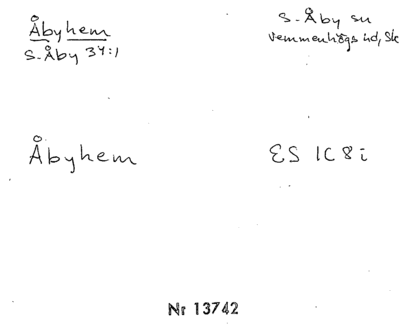 Åbyhem
S. Åby 34:1
S. Åby sn
Vemmenhögs hd, Sk
Åbyhem
ES 1C 8i
Nr 13742